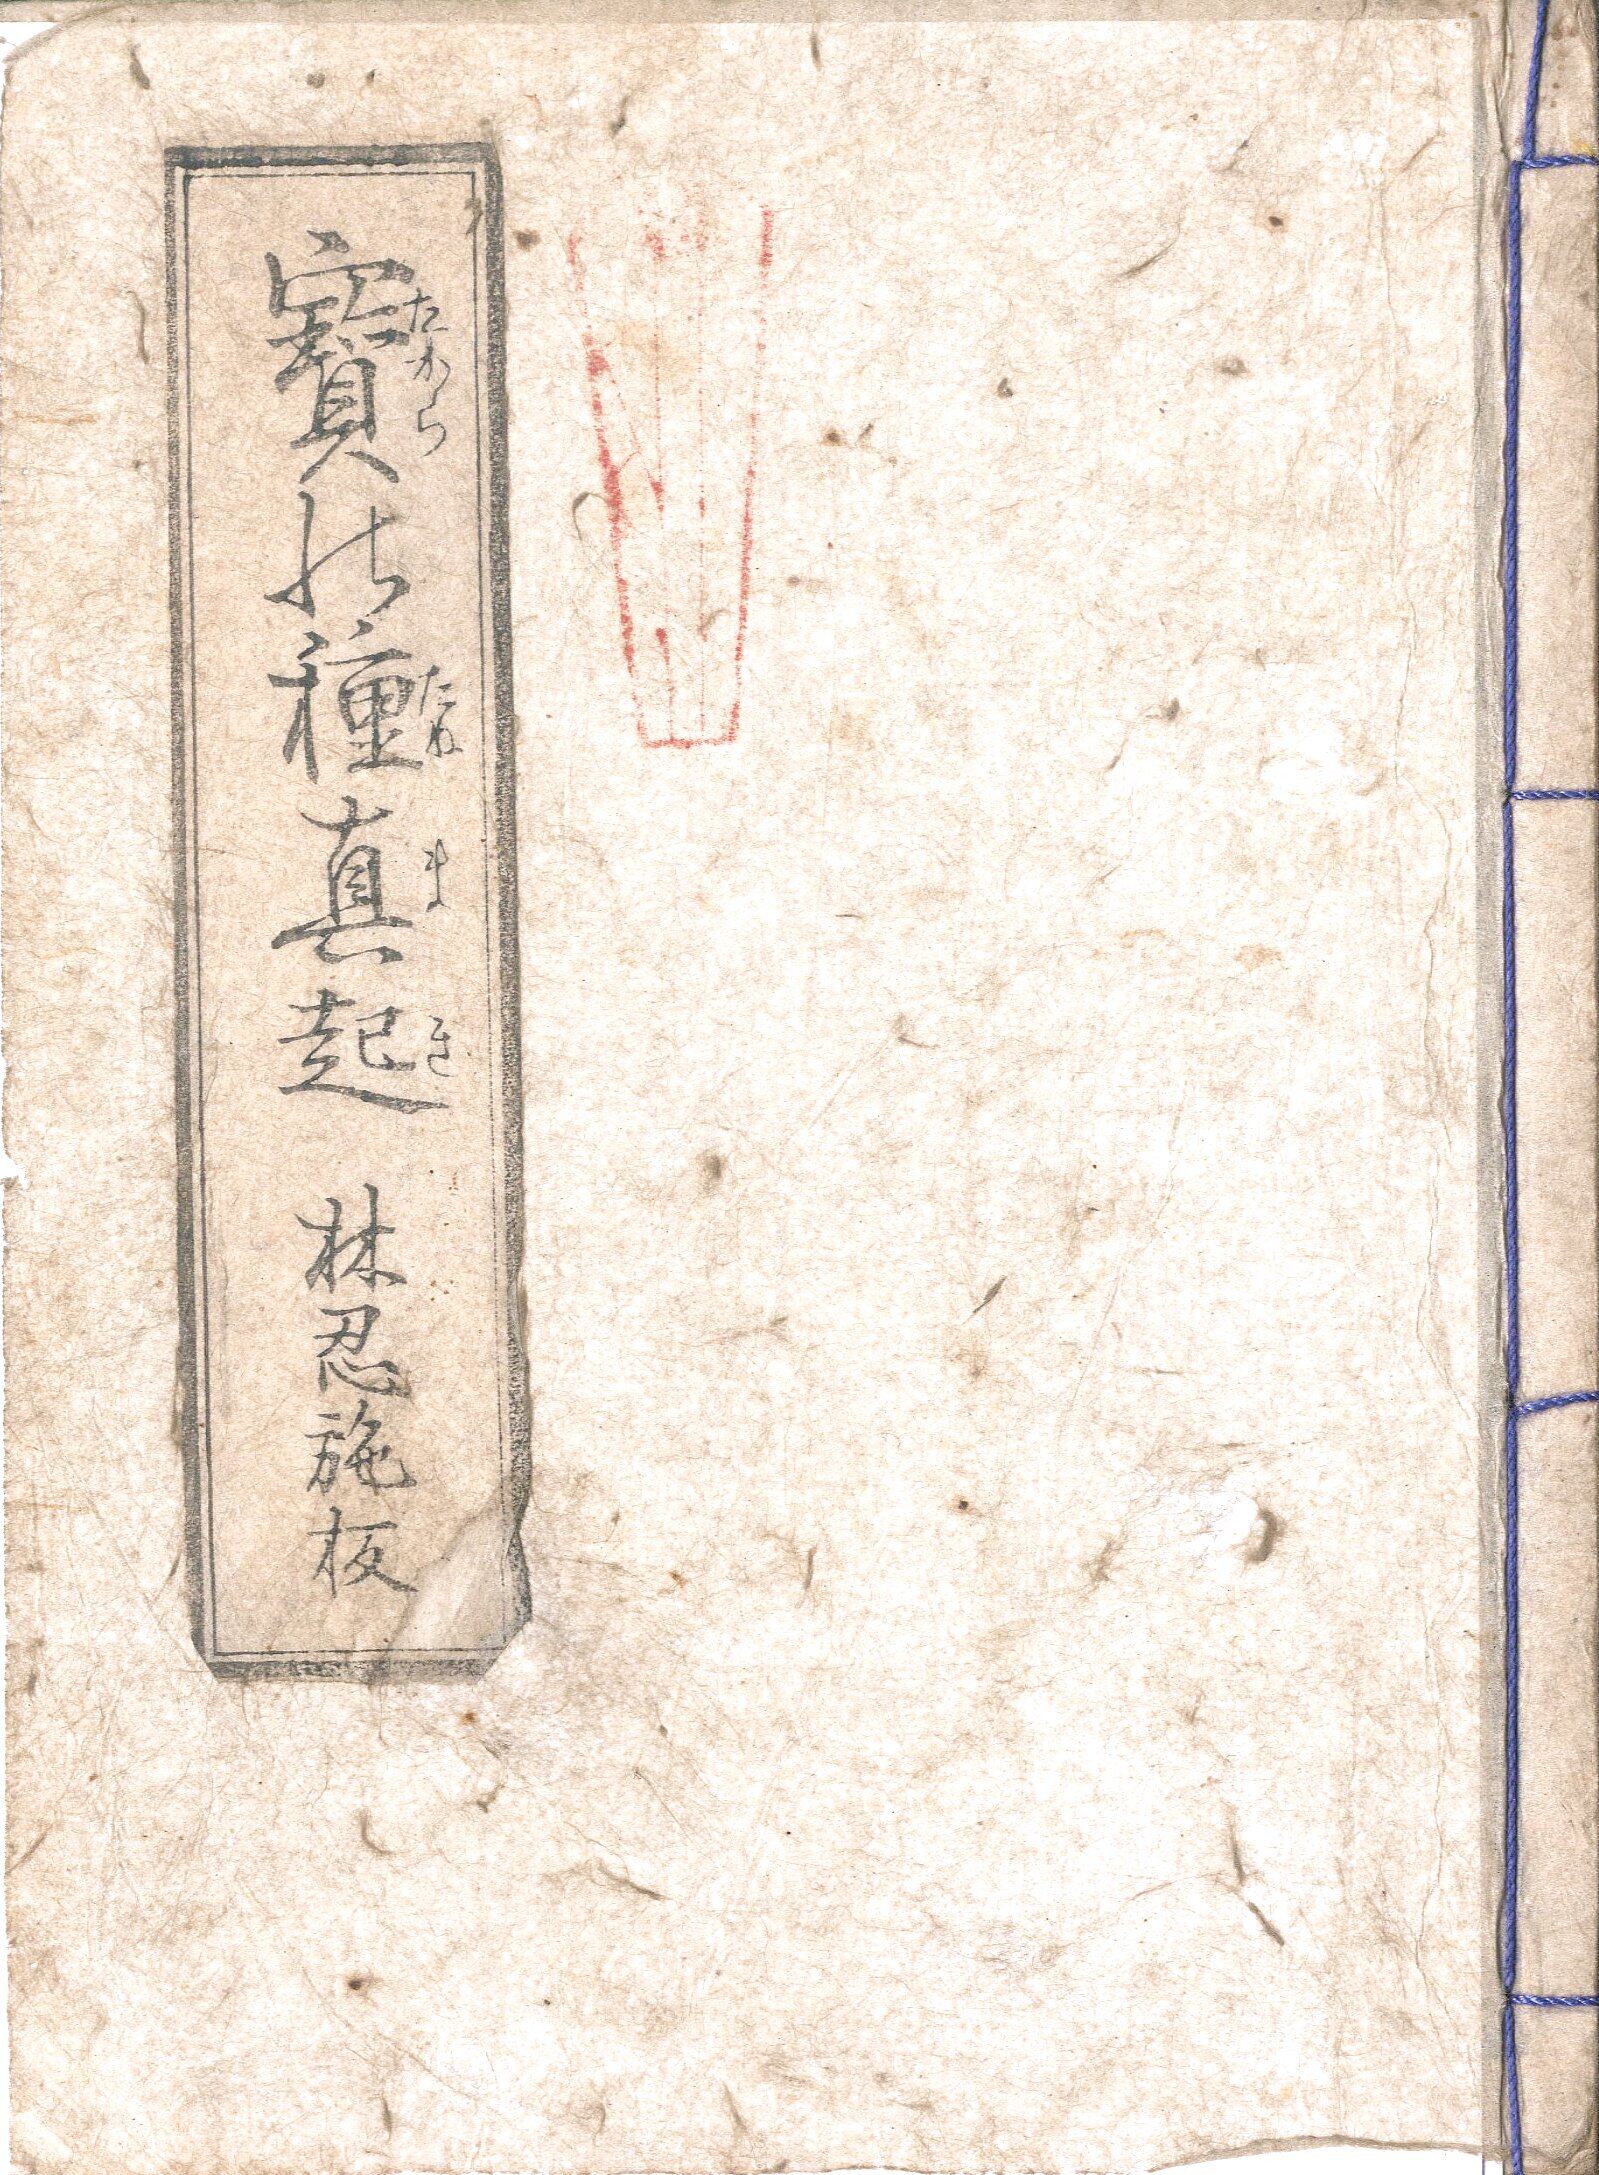 寳能種真起 林忍施板
たから
たね
ま
き